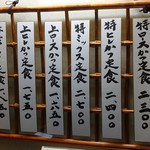 特ロースかつ定食 二三〇〇
特ヒレかつ定食 二四〇〇
特ミックス定食 二七〇〇
上ロースかつ定食 一六五〇
上ヒレかつ定食 一七五〇